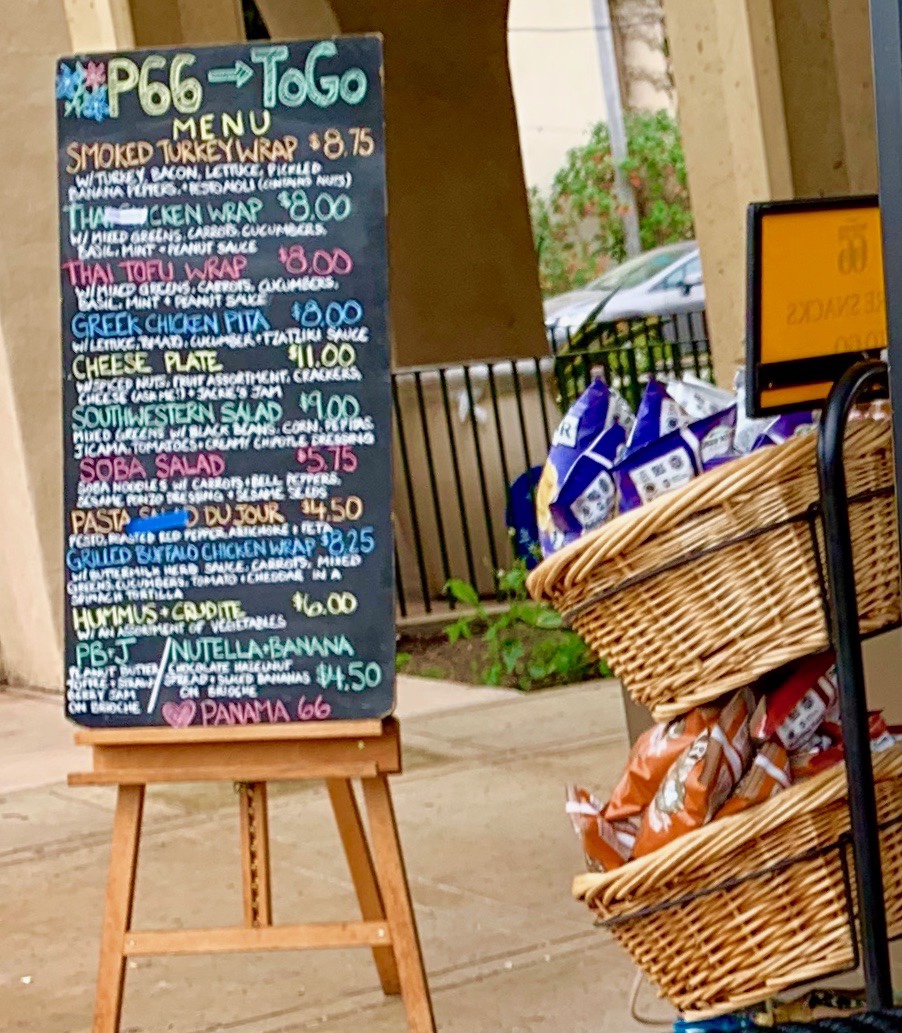 P66 → ToGo
MENU
SMOKED TURKEY WRAP $8.75
W/ TURKEY, BACON, LETTUCE, PICKLED
BANANA PEPPERS, + PESTO AIOLI (CONTAINS NUTS)
THA CKEN WRAP $8.00
W/ MIXED GREENS, CARROTS, CUCUMBERS,
BASIL, MINT + PEANUT SAUCE
THAI TOFU WRAP $8.00
W/ MIXED GREENS, CARROTS, CUCUMBERS,
BASIL, MINT + PEANUT SAUCE
GREEK CHICKEN PITA $8.00
W/ LETTUCE, TOMATO, CUCUMBER + TZATZIKI SAUCE
CHEESE PLATE $11.00
W/ SPICED NUTS, FRUIT ASSORTMENT, CRACKERS,
CHEESE (ASK ME!) + JACKIE'S JAM
SOUTHWESTERN SALAD $9.00
MIXED GREENS W/ BLACK BEANS, CORN, PEPITAS,
JICAMA, TOMATOES + CREAMY CHIPOTLE DRESSING
SOBA SALAD $5.75
SOBA NOODLES W/ CARROTS + BELL PEPPERS,
SESAME PONZO DRESSING + SESAME SEEDS
PASTA DU JOUR $4.50
PESTO, ROASTED RED PEPPER, ARTICHOKE + FETA
GRILLED BUFFALO CHICKEN WRAP $8.25
W/ BUTTERMILK HERB SAUCE, CARROTS, MIXED
GREENS, CUCUMBERS, TOMATO + CHEDDAR IN A
SPINACH TORTILLA
HUMMUS + CRUDITE $6.00
W/ AN ASSORTMENT OF VEGETABLES
PB+J / NUTELLA + BANANA
PEANUT BUTTER CHOCOLATE HAZELNUT
SPREAD + SLICED BANANAS $4.50
BERRY JAM ON BRIOCHE
ON BRIOCHE
PANAMA 66
66
RE SNACKS